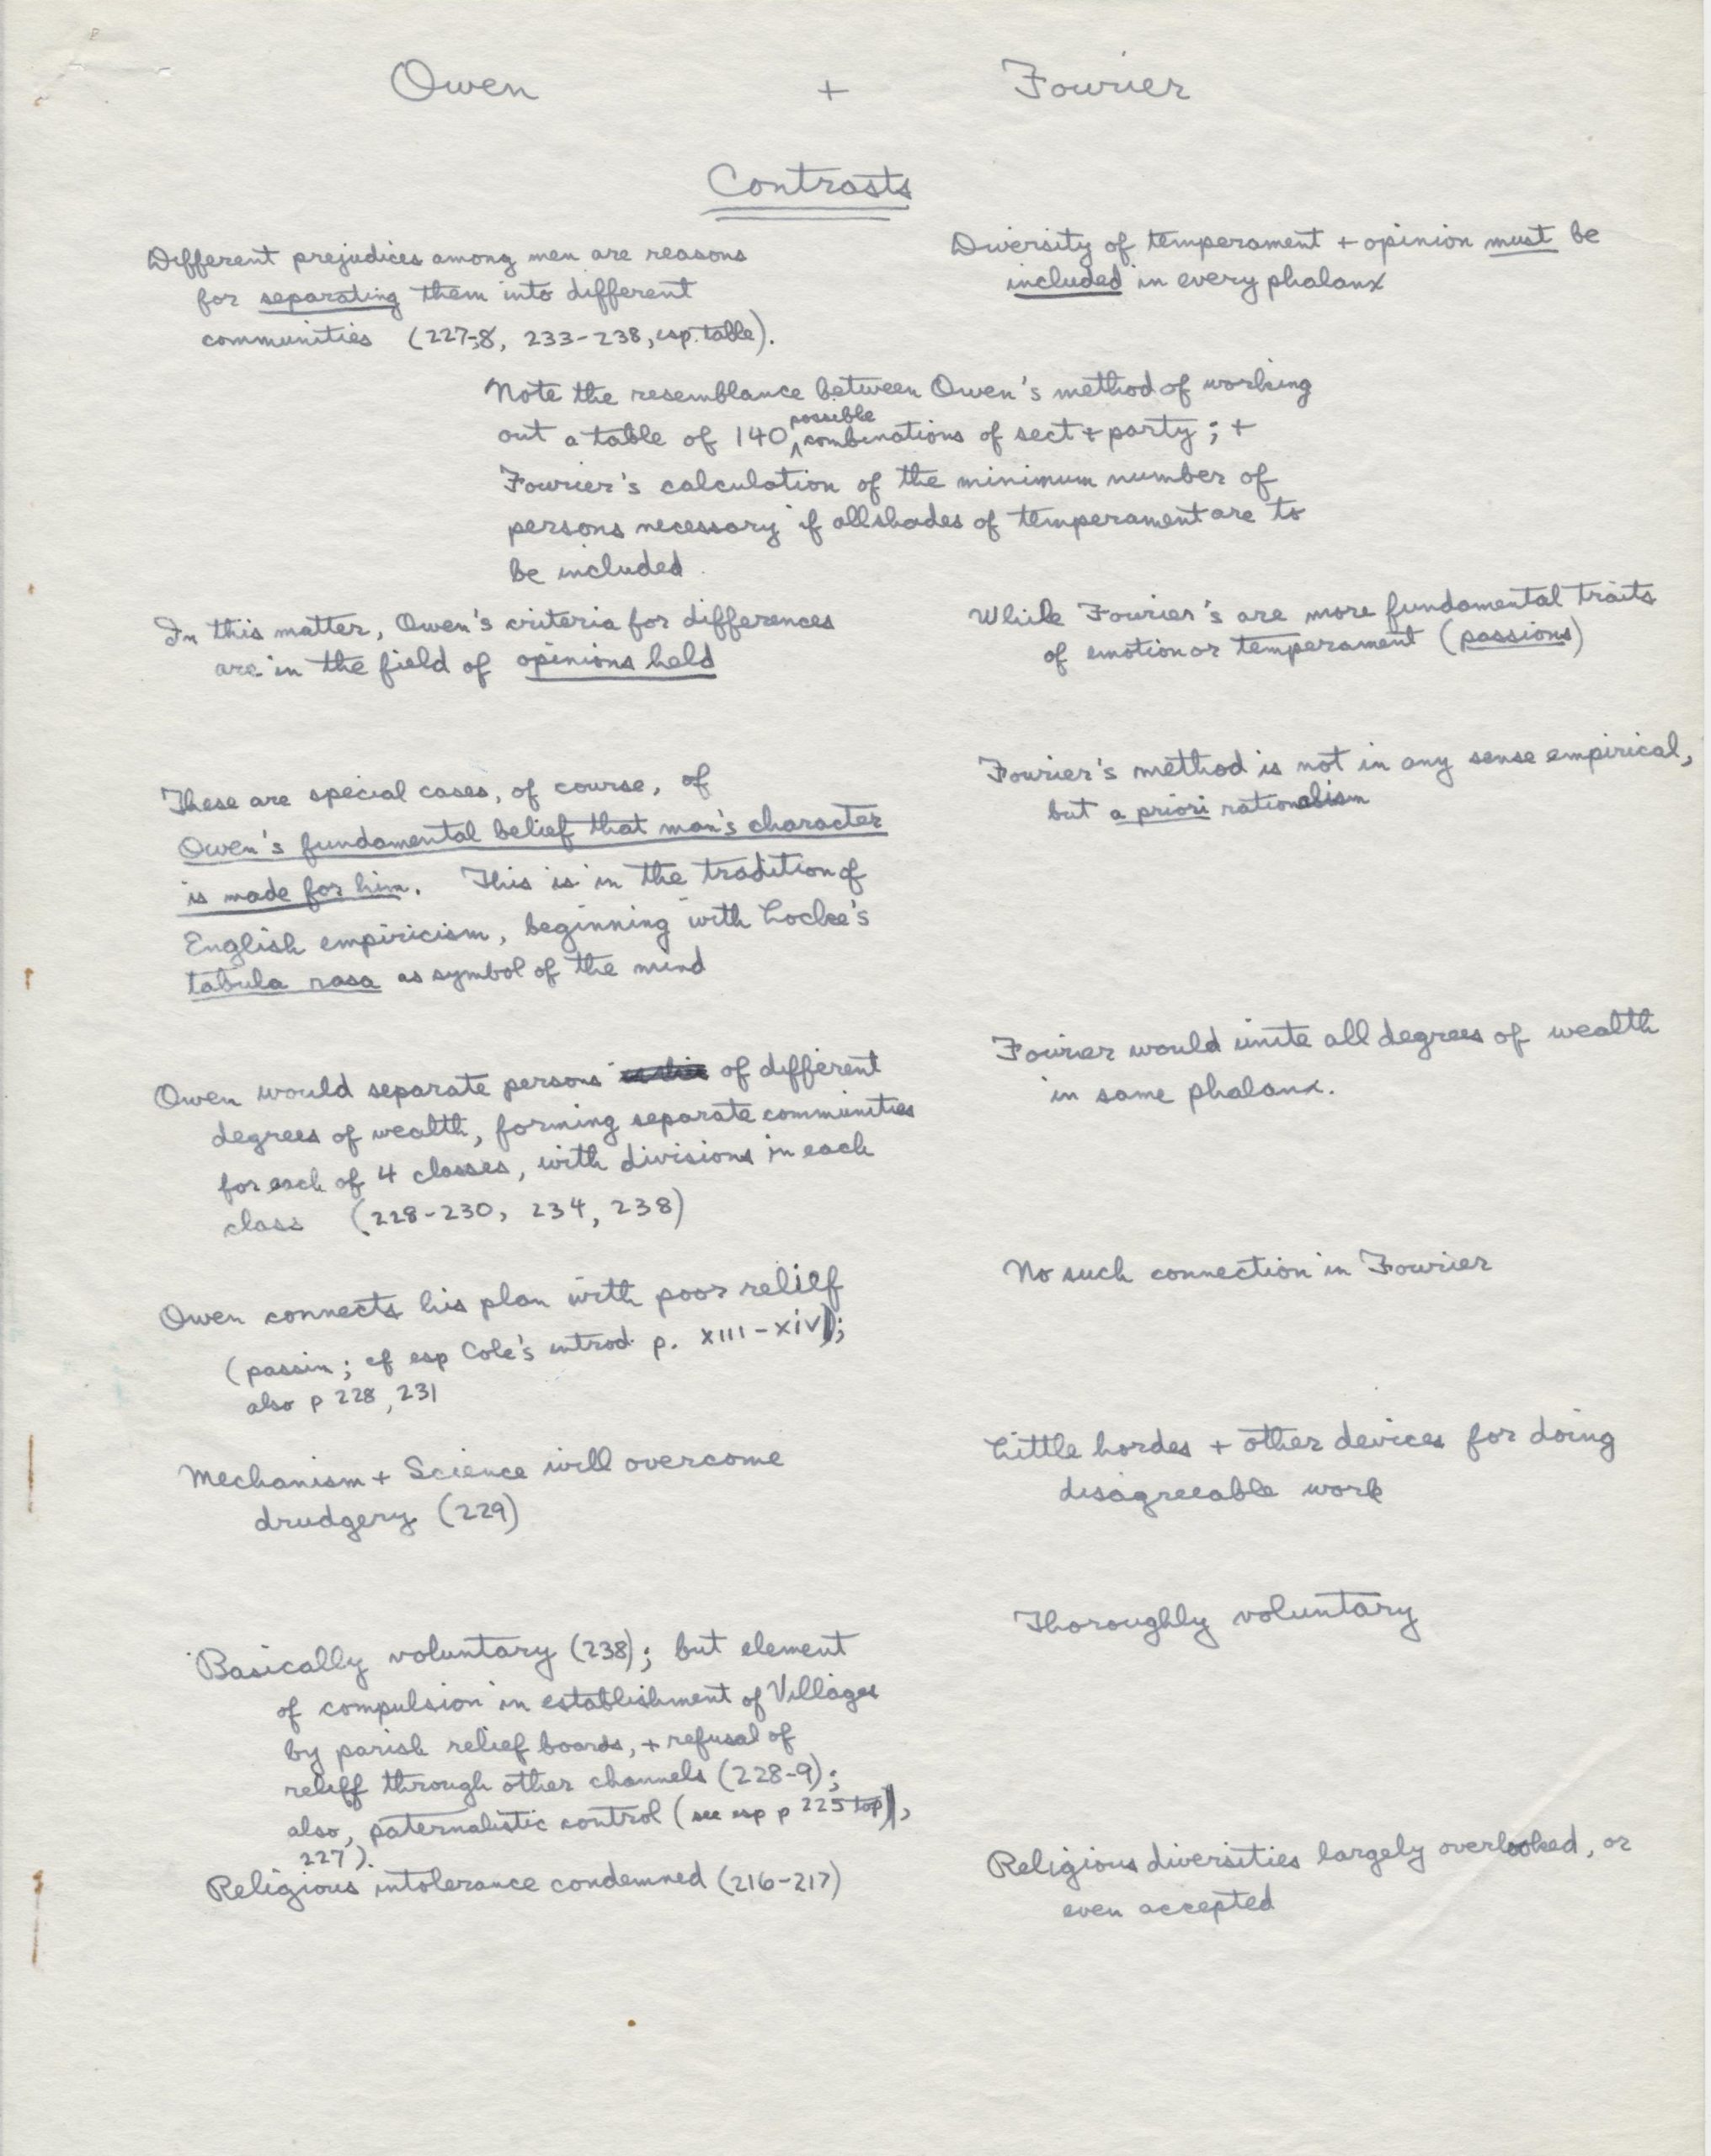 Owen + Fourier
Contrasts
Different prejudices among men are reasons
for separating them into different
communities (227-8, 233-238, esp. table).
Diversity of temperament + opinion must be
included in every phalanx
Note the resemblance between Owen's method of working
out a table of 140 possible combinations of sect + party; +
Fourier's calculation of the minimum number of
persons necessary if all shades of temperament are to
be included.
In this matter, Owen's criteria for differences
are in the field of opinions held
While Fourier's are more fundamental traits
of emotion or temperament (passions)
These are special cases, of course, of
Owen's fundamental belief that man's character
is made for him. This is in the tradition of
English empiricism, beginning with Locke's
tabula rasa as symbol of the mind
Fourier's method is not in any sense empirical,
but a priori rationalism
Owen would separate persons of different
degrees of wealth, forming separate communities
for each of 4 classes, with divisions in each
class (228-230, 234, 238)
Fourier would unite all degrees of wealth
in same phalanx.
Owen connects his plan with poor relief
(passim; cf esp Cole's introd. p. XIII-XIV);
also p 228, 231
No such connection in Fourier
Mechanism + Science will overcome
drudgery (229)
Little hordes + other devices for doing
disagreeable work
Basically voluntary (238); but element
of compulsion in establishment of Villages
by parish relief boards, + refusal of
relief through other channels (228-9);
also, paternalistic control (see esp p 225 top),
227).
Thoroughly voluntary
Religious intolerance condemned (216-217)
Religious diversities largely overlooked, or
even accepted